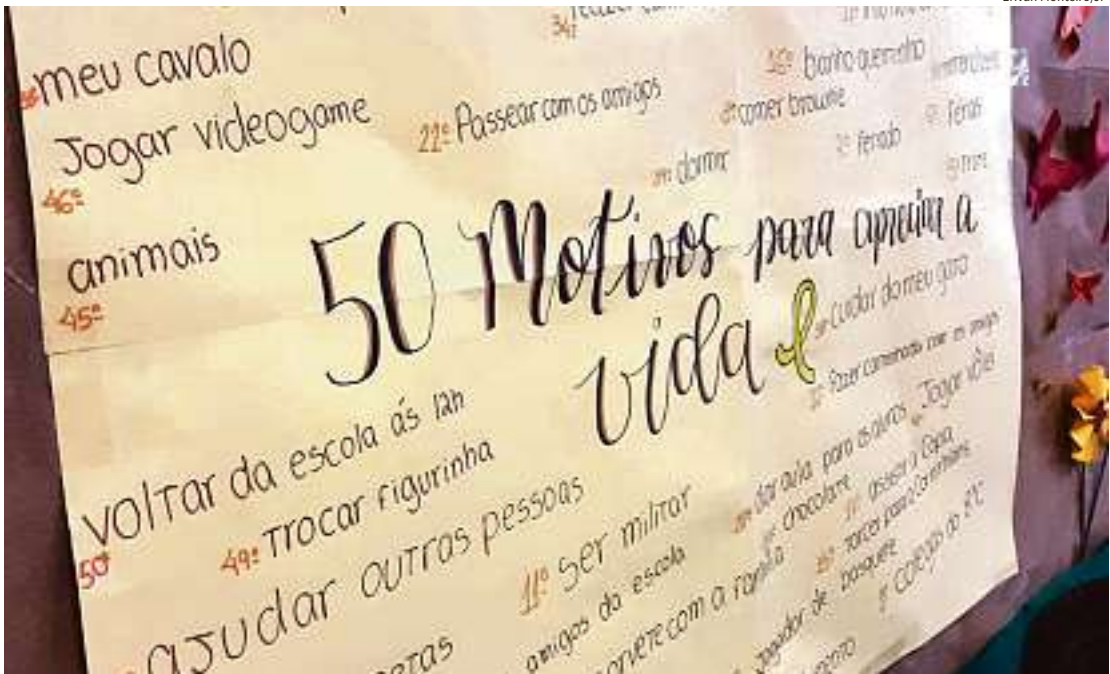 meu cavalo
Jogar videogame
46º
animais
45º
34º
22º Passear com os amigos
dormir
16º banho quentinho
comer brownie
feriado
férias
50 Motivos para apreciar a
vida
cuidar do meu gato
fazer caminhada com os amigos
voltar da escola ás 12h
50º
49º Trocar figurinha
ajudar outras pessoas
11º ser militar
amigos da escola
sorvete com a família
dar aula para os alunos
Jogar vôlei
chocolate
assistir a Copa
torcer para Corinthians
jogador de basquete
colegas do 8ºC